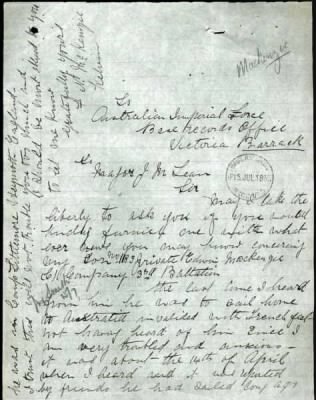 Mackenzie
To
Australian Imperial Force
Base records Office
Victoria Barrack
Major J. M Lean
Sir
May I take the
liberty to ask you if you would
kindly furnish me with what
ever news you may know concerning
my Son Private Edwin Mackenzie
C Company 3rd Battalion
the last time I heard
from him he was to sail home
to Australia invalided with trench feet
not having heard of him since I
am very troubled and anxious
it was about the 14th of April
when I heard and it was
by friends he had sailed long ago
he was in Camp Littlemoor Weymouth England
I trust this will not trouble you too much and
I would be most thankful to you
to let me know
gratefully yours